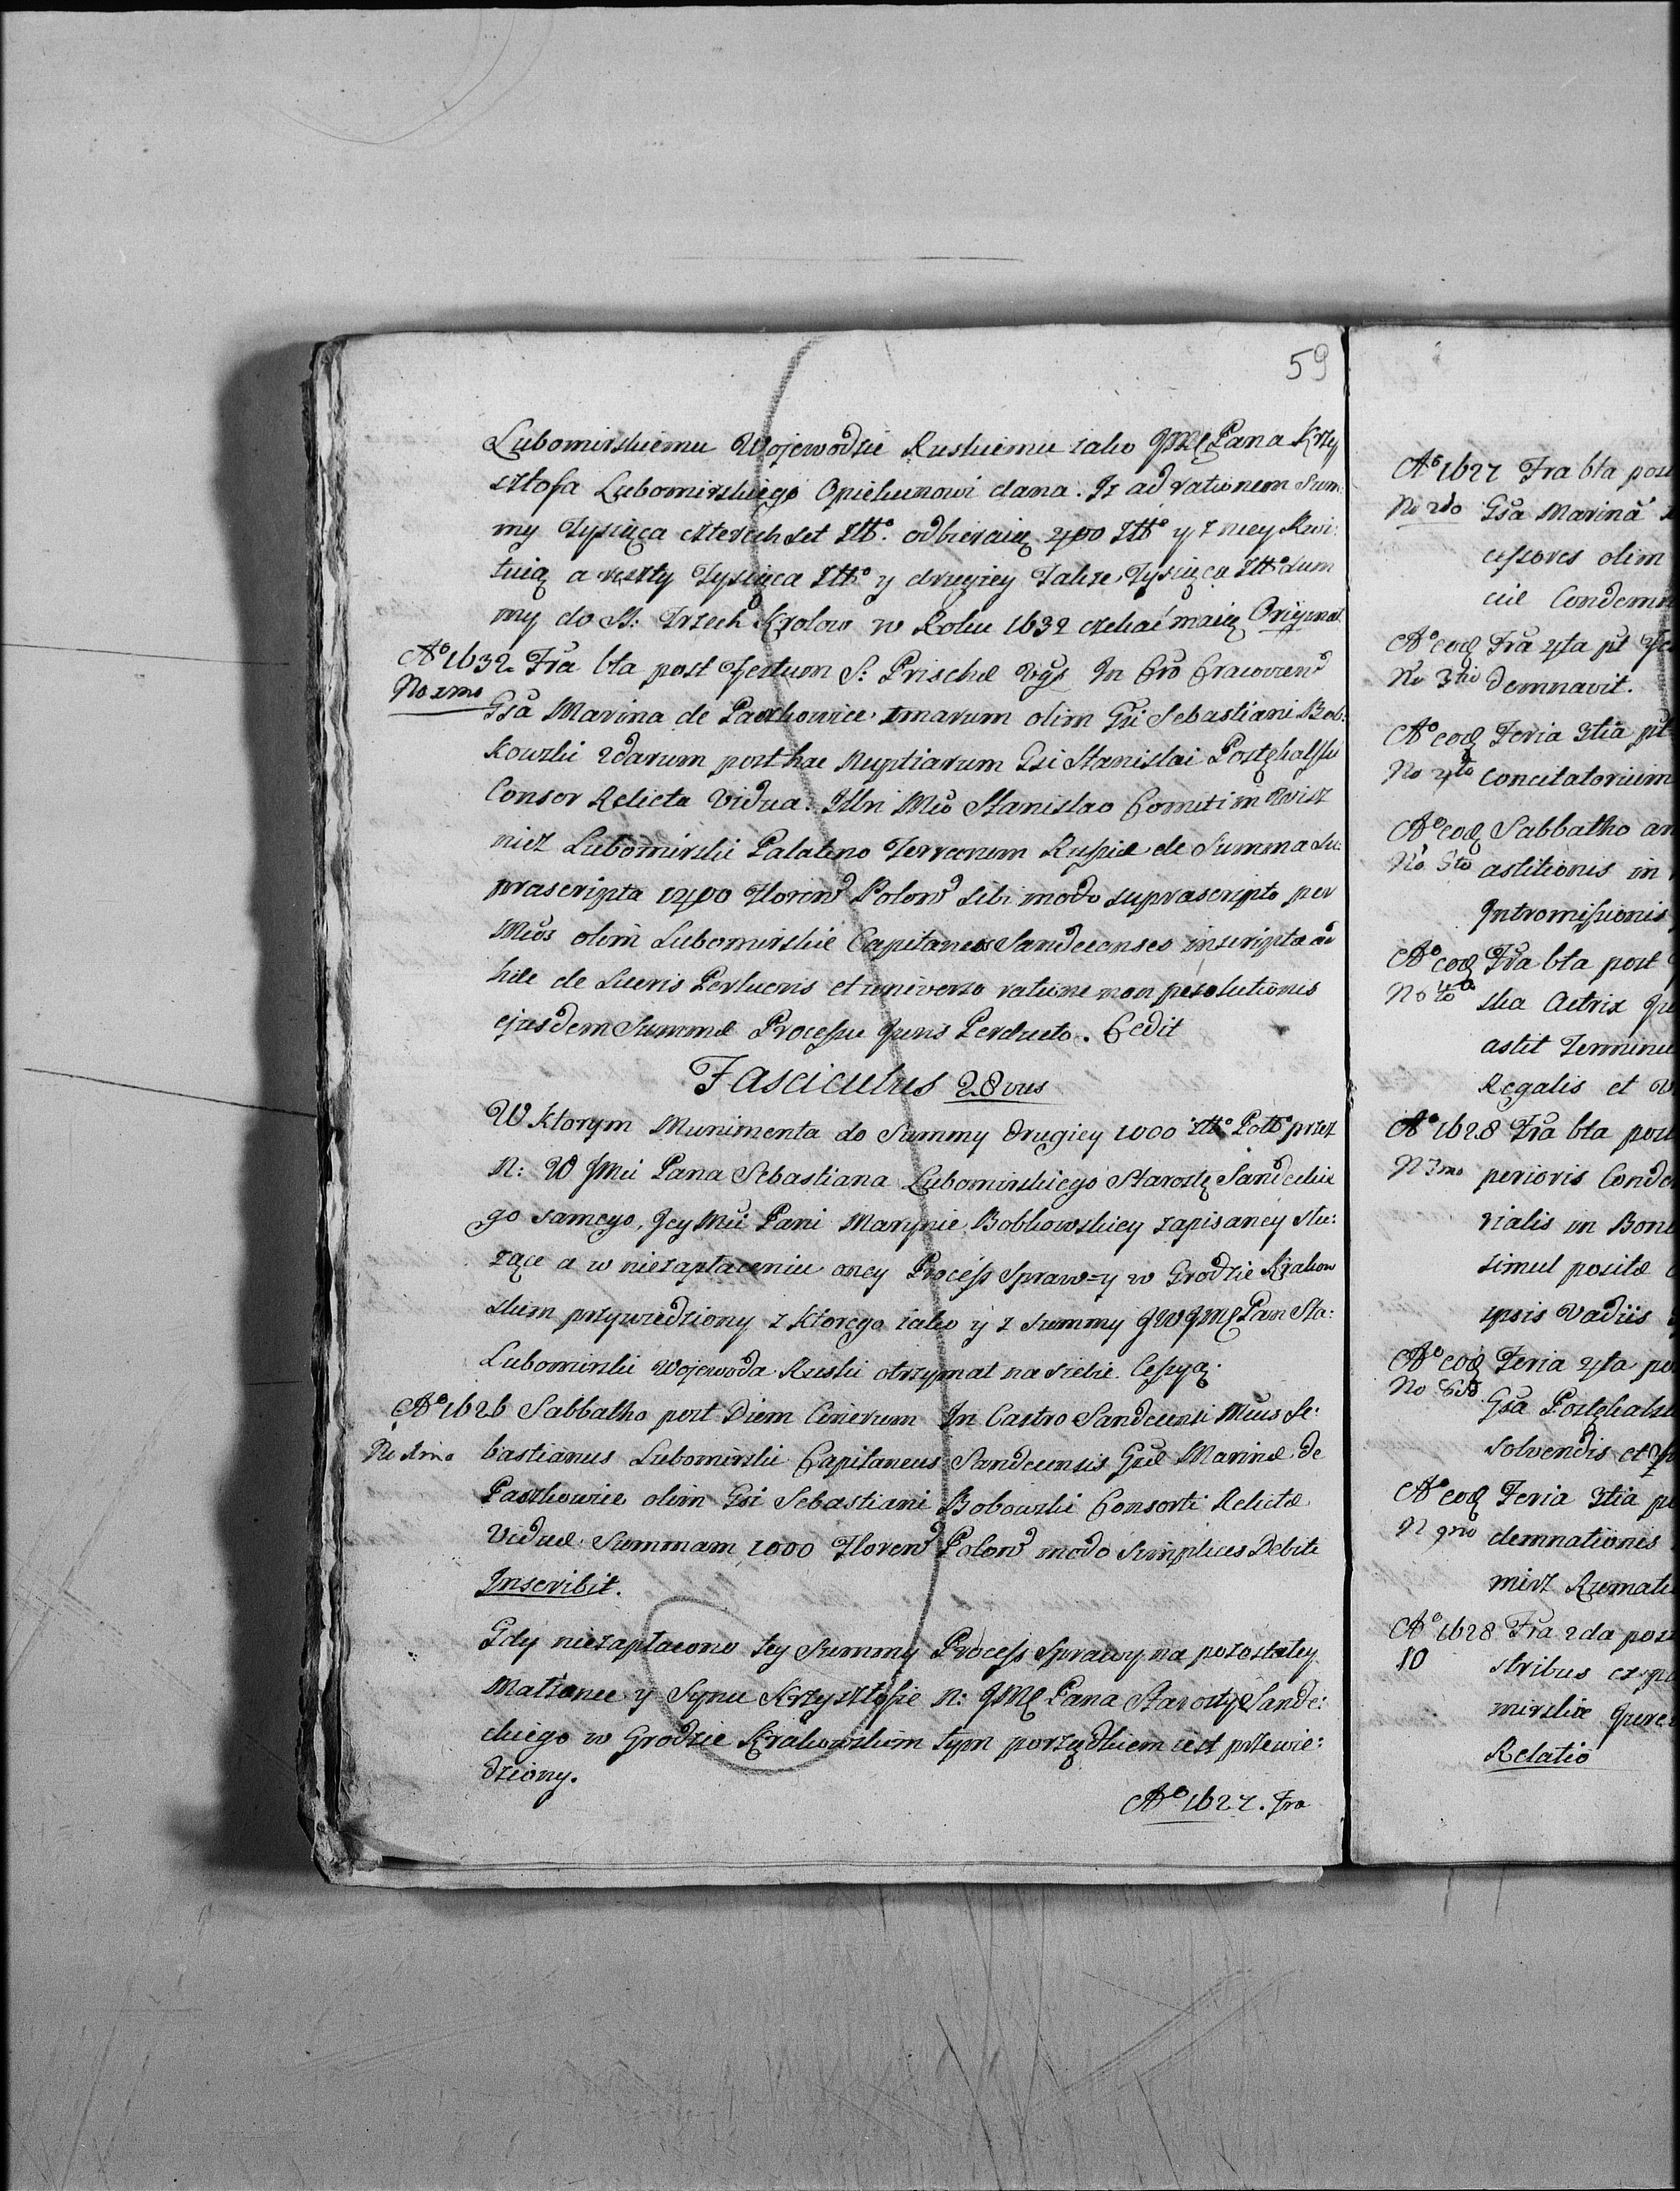 59
Lubomirskiemu Wojewodzie Ruskiemu iako JMć Pana Krzy
sztofa Lubomirskiego Opiekunowi dana. Iz ad rationem Sum:
my Tysiąca czterechset Złł°. odbieraią 400 Złł° y z niey Kwi:
tuią a reszty Tysiąca Złł° y drugiey Takze Tysiąca Złł° Sum
my do SS: Trzech Krolow w Roku 1632 czekać maią Oryginał.
A° 1632 Fra 6ta post Festum S: Priscæ Vgs In Cro Cracovien
No 2mo
Gsa Marina de Paszkowice 1marum olim Gsi Sebastiani Bob:
kowski 2darum post hac Nuptiarum Gsi Stanislai Postękalski
Consor Relicta Vidua. Illri Mco Stanislao Comiti in Wisz
nicz Lubomirski Palatino Terrarum Russiæ de Summa Su:
prascripta 1400 Floren Polon Sibi modo suprascripto per
Mcos olim Lubomirskie Capitaneos Sandecenses inscripta ad
huc de Lucris Perlucris et universo ratione non persolutionis
ejusdem Summæ Processu Juris Perducto. Cedit
Fasciculus 28vus
W Ktorym Munimenta do Summy drugiey 1000 Złł° Poll przez
N: W JMci Pana Sebastiana Lubomirskiego Starostę Sandeckie
go samego, Jey Mci Pani Marynie Bobkowskiey zapisaney słu:
zące a w niezapłaceniu oney Process Spraw=y w Grodzie Krakow
skim przywiedziony z Ktorego iako y z Summy JW JMć Pan Sta:
Lubomirski Wojewoda Ruski otrzymał na siebie Cessyą.
A° 1626 Sabbatho post Diem Cinerum In Castro Sandecensi Mcus Se:
No 1mo bastianus Lubomirski Capitaneus Sandecensis Gsæ Marinæ de
Paszkowie olim Gsi Sebastiani Bobowski Consorti Relictæ
Viduæ Summam 1000 Floren Polon modo Simplicis Debiti
Inscribit.
Gdy niezapłacono tey Summy Process Sprawy na pozostałey
Małzonce y Synu Krzysztofie N: JMć Pana Starosty Sande:
ckiego w Grodzie Krakowskim tym porządkiem iest przewie:
dziony.
A° 1627. Fra
A° 1627 Fra 6ta post
No 2do Gsa Marina
cessores olim
ciæ Condemn
A° eod Fra 4ta pt
No 3tio demnavit.
A° eod Feria 3tia pt
No 4to Concitatorium
A° eod Sabbatho an
No 5to astitionis in
Intromissionis
A° eod Fra 6ta post
No 6to ska Actrix
astit Terminu
Regalis et
A° 1628 Fra 6ta post
N 7mo perioris Conde
rialis in Bon
simul positæ
ipsis Vadiis
A° eod Feria 4ta po
No 8vo Gsa Postękalsk
solvendis et
A° eod Feria 3tia
N 9no demnationes
mirz Rumati
A° 1628 Fra 2da post
10 stribus ex
mirskie Jure
Relatio